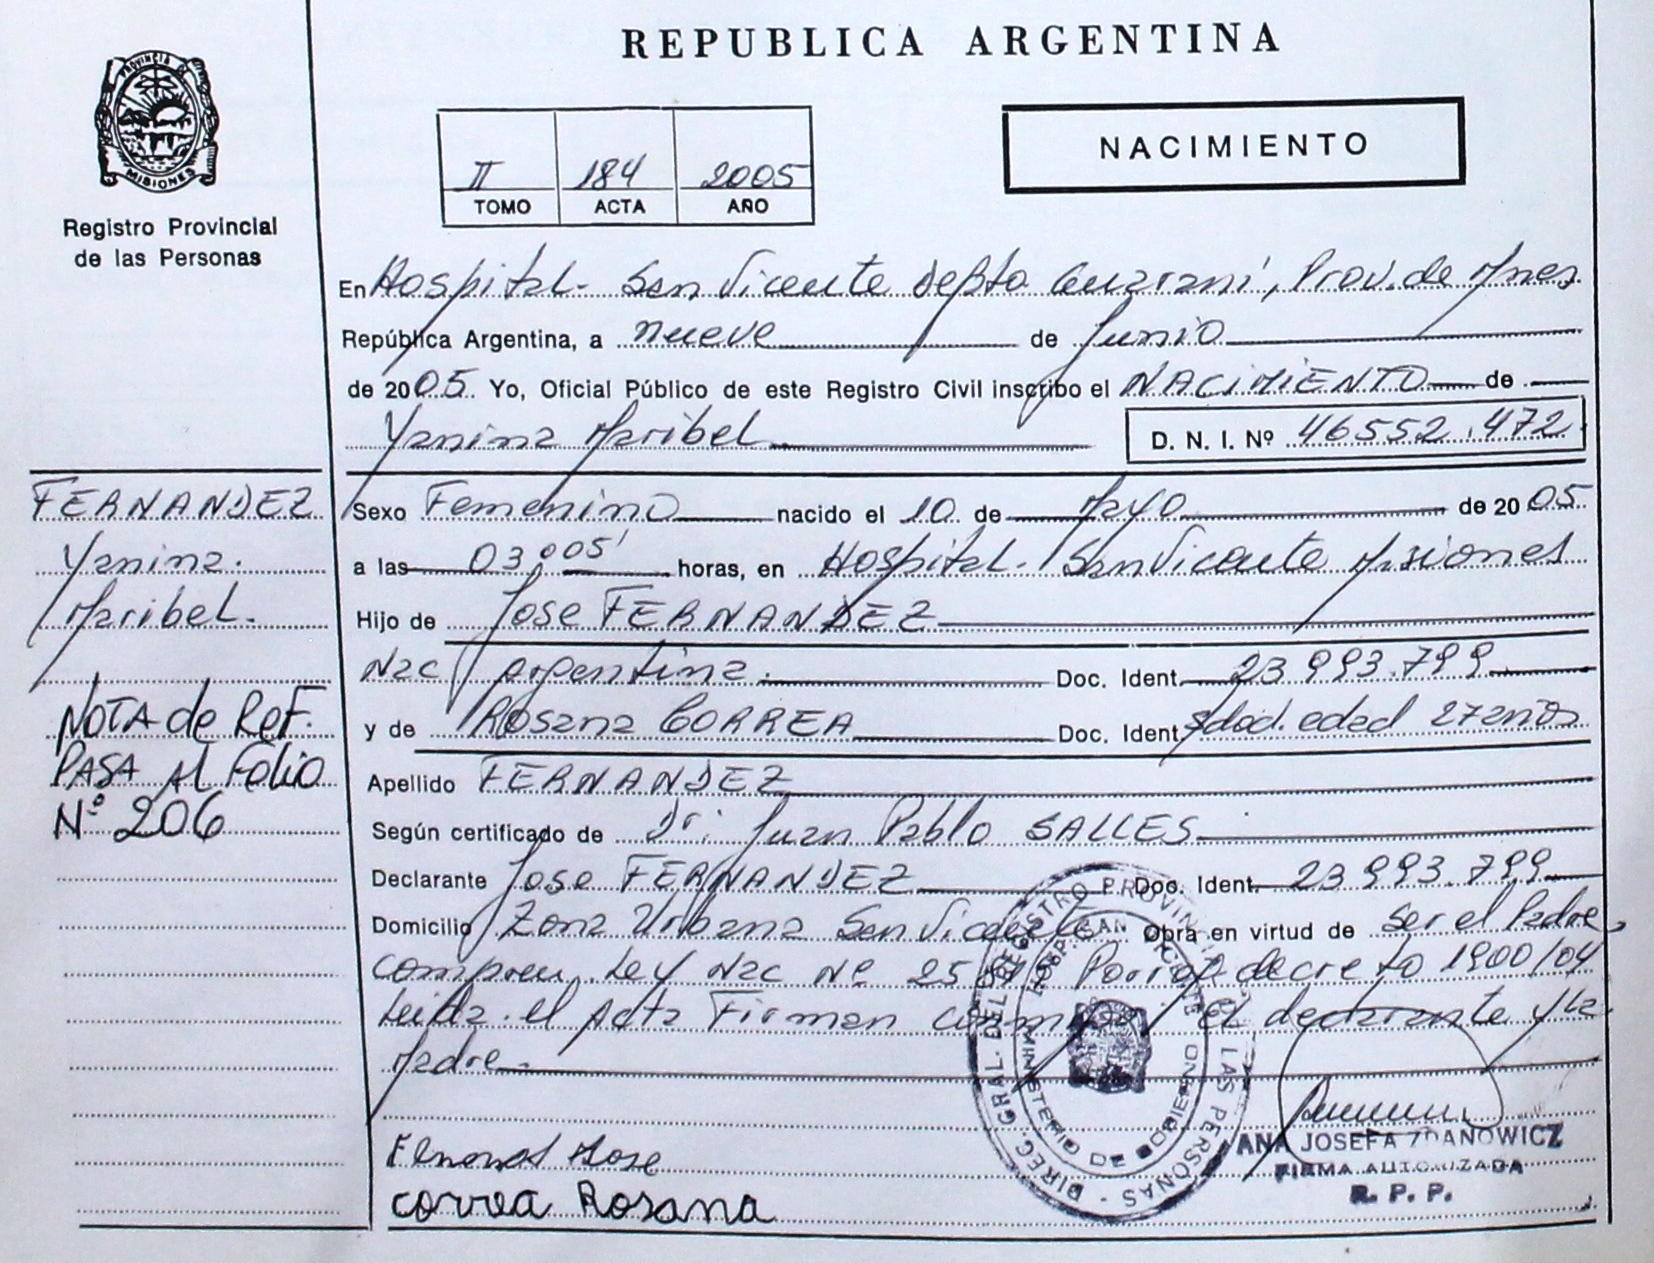 REPUBLICA ARGENTINA
PROVINCIA DE
MISIONES
Registro Provincial
de las Personas
II 184 2005
TOMO ACTA AÑO
NACIMIENTO
En Hospital- San Vicente depto Guarani, Prov. de Mnes
República Argentina, a nueve de Junio
de 2005 Yo, Oficial Público de este Registro Civil inscribo el NACIMIENTO de
Yanina Maribel
D. N. I. Nº 46552.472
FERNANDEZ
Yanina.
Maribel.
NOTA de REF.
PASA Al Folio
Nº 206
Sexo Femenino nacido el 10 de Mayo de 2005
a las 03,005' horas, en Hospital. San Vicente Misiones
Hijo de Jose FERNANDEZ
Nac Argentina. Doc. Ident. 23993.799
y de Rosana CORREA Doc. Ident. edad 27 años
Apellido FERNANDEZ
Según certificado de Dr. Juan Pablo SALLES
Declarante Jose FERNANDEZ Doc. Ident. 23993.799
Domicilio Zona Urbana San Vicente Obra en virtud de ser el Padre
Ley Nac Nº decreto 1900/04
Leida el Acta Firman el declarante y la
Madre.
DIREC. GRAL. DEL REGISTRO PROVINCIAL DE LAS PERSONAS
HOSP. SAN VICENTE
MINISTERIO DE GOBIERNO
Jose
Correa Rosana
ANA JOSEFA ZDANOWICZ
FIRMA AUTORIZADA
R. P. P.